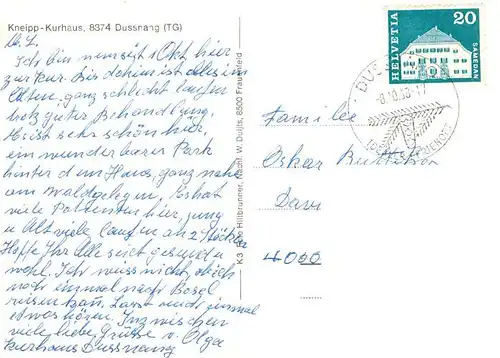 Kneipp-Kurhaus, 8374 Dussnang (TG)
M. L.
Ich bin nun seit 1 Okt. hier
zur Kur. Bis dahin ist alles im
Alten, ganz schlecht laufen
trotz guter Behandlung.
Es ist sehr schön hier,
ein wunderbarer Park
hinter dem Haus, ganz nahe
am Waldgelegen, Es hat
viele Patienten hier, jung
u Alt viele laufen an 2 Stöcken
Hoffe Ihr Alle seit gesund u
wohl. Ich weiss nicht, ob ich
noch einmal nach Basel
reisen kan. Lasst auch einmal
etwas hören. Inzwischen
viele liebe Grüsse v. Olga
Kurhaus Dussnang
Hiltbrunner, Nachf. W. Duijts, 8500 Frauenfeld
HELVETIA
20
SAMEDAN
Familie
Oskar
4000